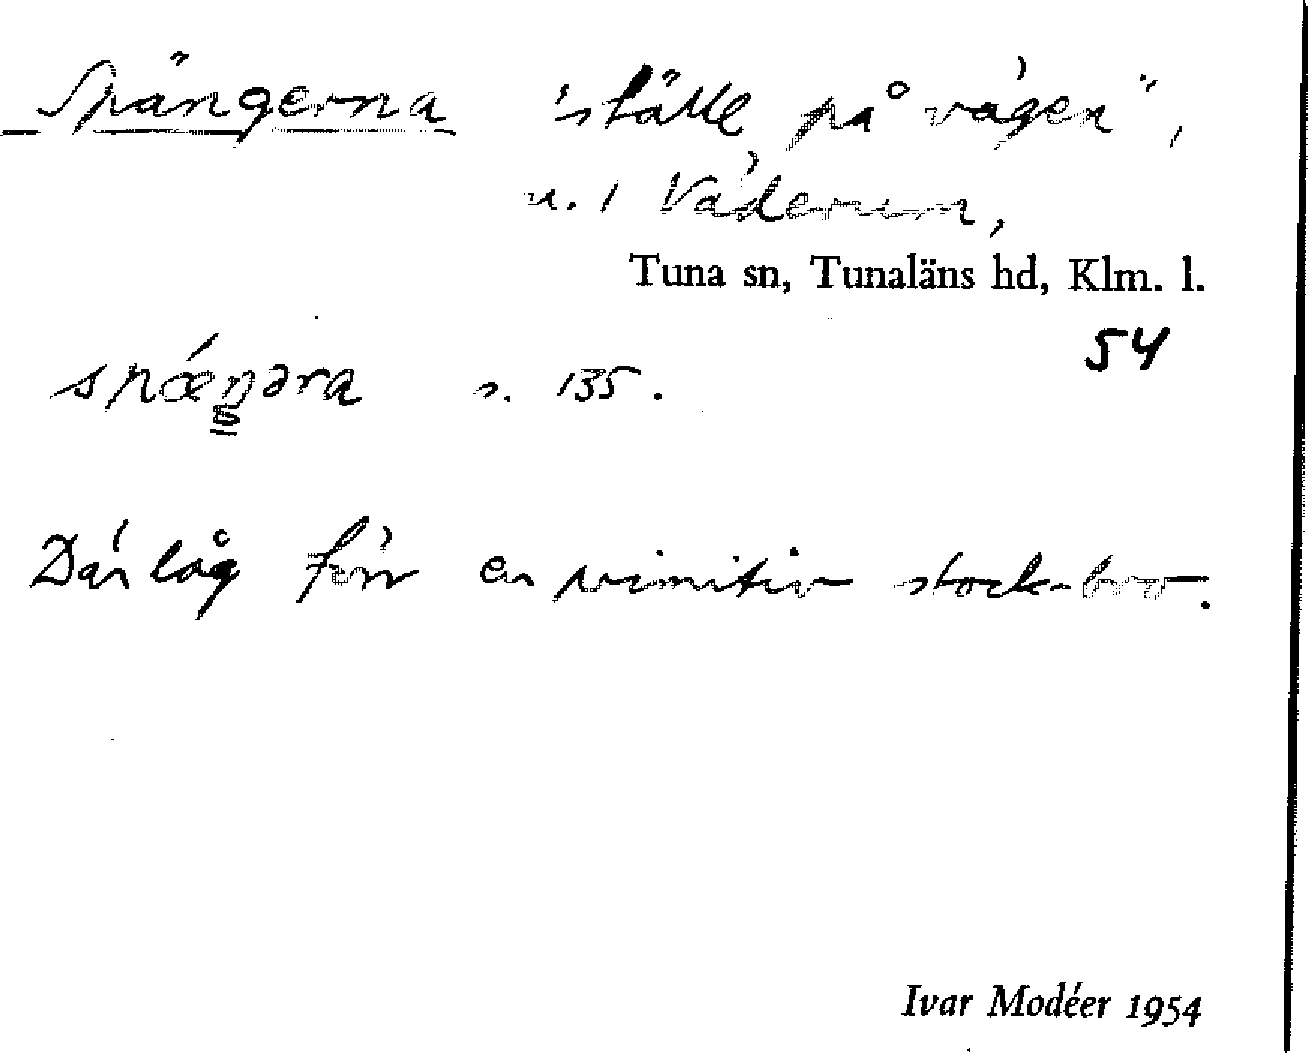 Spängerna "ställe på vägen",
n. 1 Väderum,
Tuna sn, Tunaläns hd, Klm. l.
54
spǽŋəra s. 135.
Där låg förr en primitiv stock-bro.
Ivar Modéer 1954